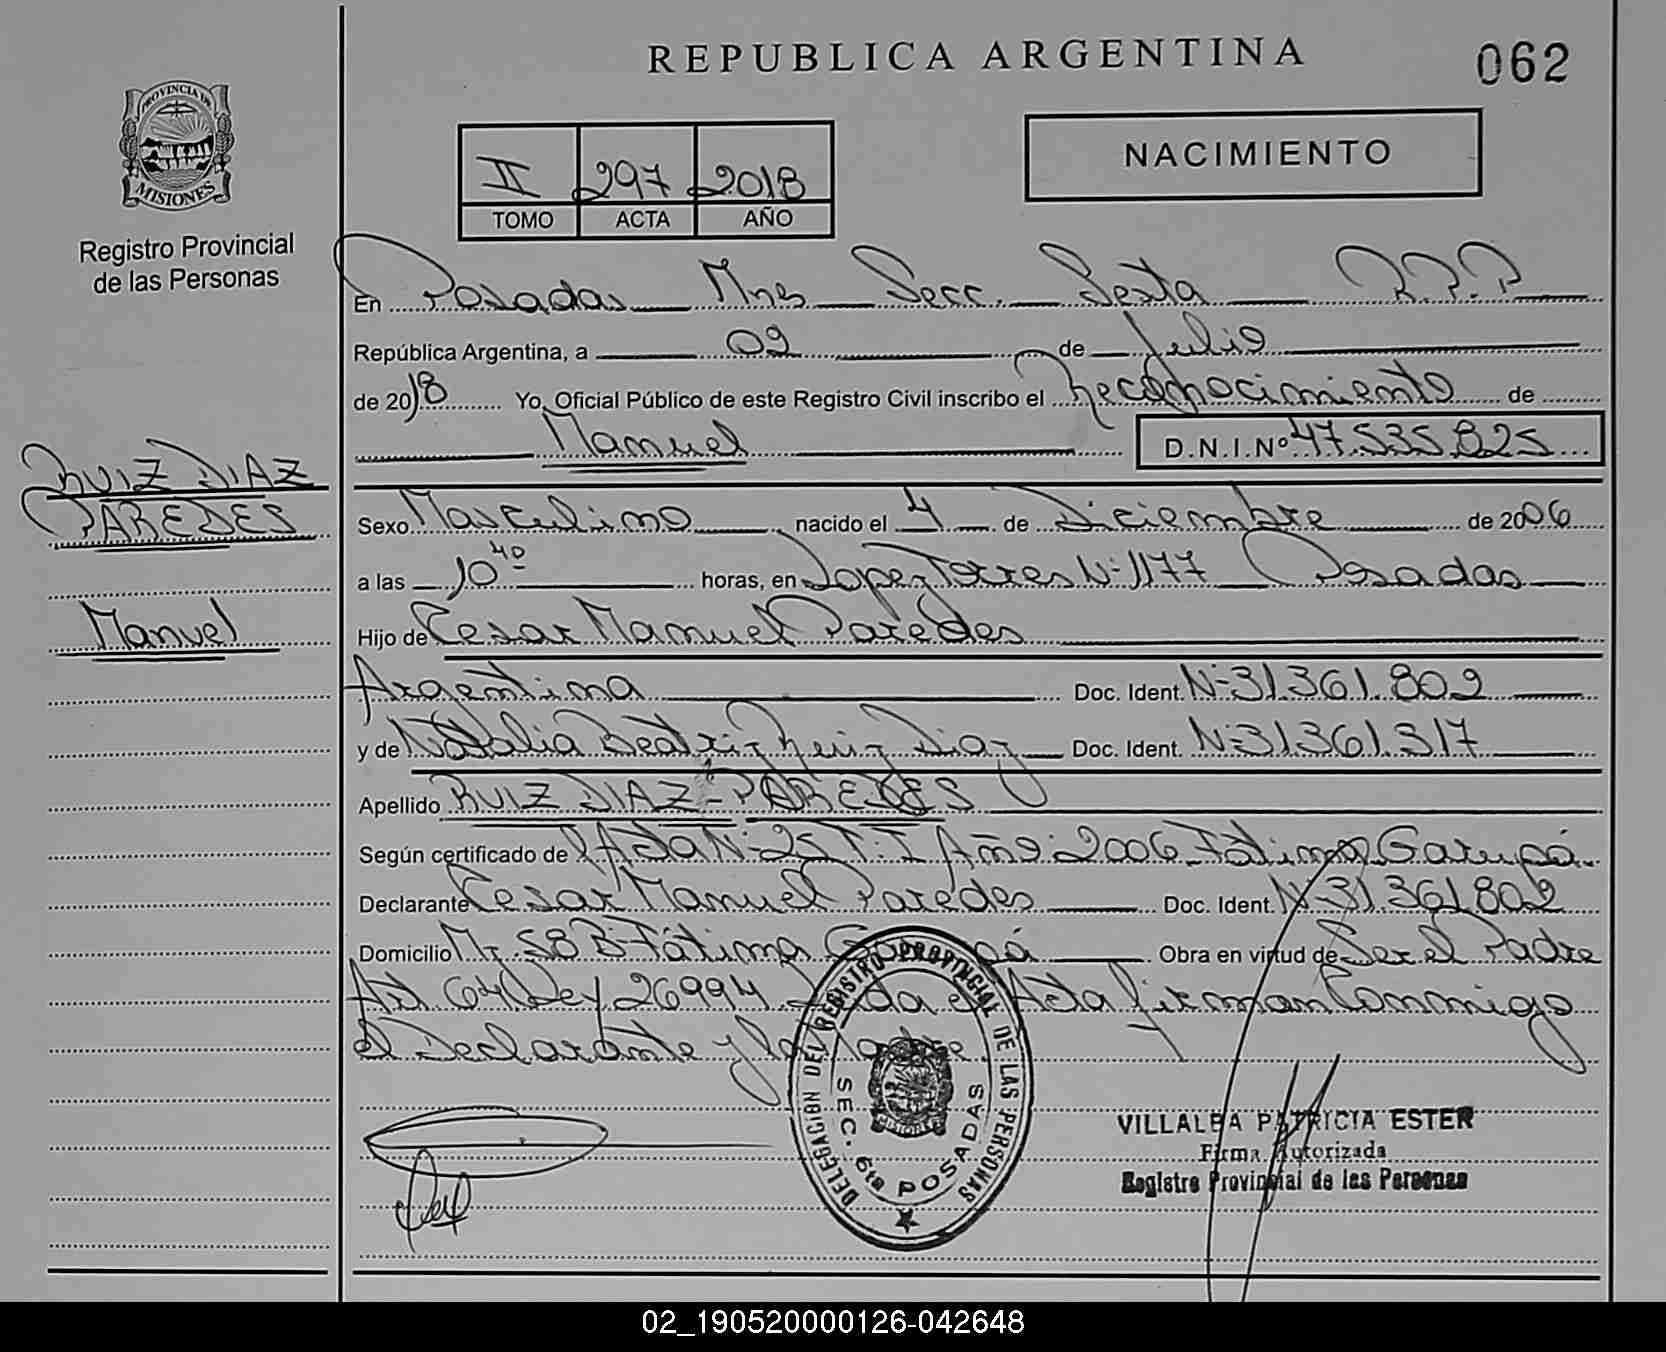 REPUBLICA ARGENTINA
062
PROVINCIA DE
MISIONES
Registro Provincial
de las Personas
II 297 2018
TOMO ACTA AÑO
NACIMIENTO
En Posadas Mnes Secc. Sexta R.P.P
República Argentina, a 02 de Julio
de 2018 Yo, Oficial Público de este Registro Civil inscribo el Reconocimiento de
Manuel D.N.I.Nº 47.535.825
RUIZ DIAZ
PAREDES
Manuel
Sexo Masculino nacido el 4 de Diciembre de 2006
a las 10 40 horas, en Lopez Torres Nº 1177 Posadas
Hijo de Cesar Manuel Paredes
Argentina Doc. Ident. Nº 31.361.802
y de Natalia Beatriz Ruiz Diaz Doc. Ident. Nº 31.361.317
Apellido RUIZ DIAZ - PAREDES
Según certificado de Acta Nº 25 T: I Año: 2006 Fátima Garupá.
Declarante Cesar Manuel Paredes Doc. Ident. Nº 31.361.802
Domicilio Mz. 58 Bº Fátima Garupá Obra en virtud de Ser el Padre
Art. 64 Ley 26994 Acta firman Conmigo
el Declarante y la
DELEGACION DEL REGISTRO PROVINCIAL DE LAS PERSONAS
SEC. 6ta POSADAS
MISIONES
VILLALBA PATRICIA ESTER
Firma Autorizada
Registro Provincial de las Personas
02_190520000126-042648